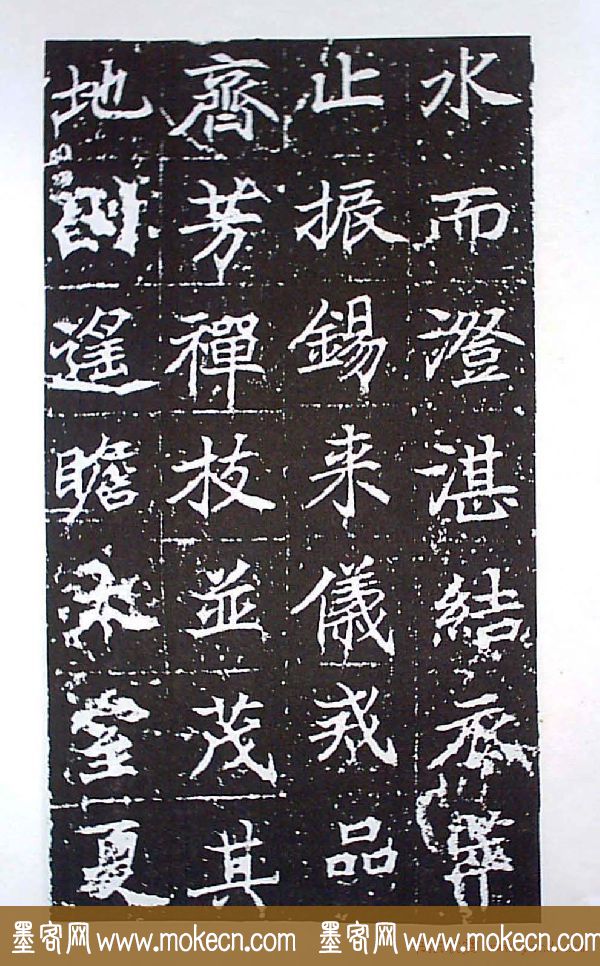 水而澄湛結萃
止振錫来儀戒品
齊芳禪枝並茂其
地則遥瞻太室夏
墨客网 www.mokecn.com 墨客网 www.mokecn.com